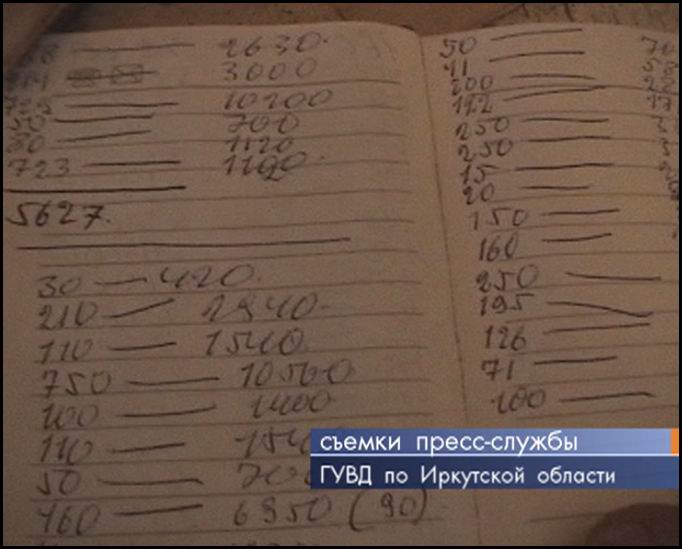 2630.
3000
10200
50 — 700
80 — 1120
723 — 1190.
5627.
30 — 420.
210 — 2940.
110 — 1540
750 — 10500
100 — 1400
110 — 154
50 — 70
460 — 6950 (90)
50
41
200
112
250
250
15
20
150
160
250
195
126
71
100
съемки пресс-службы
ГУВД по Иркутской области